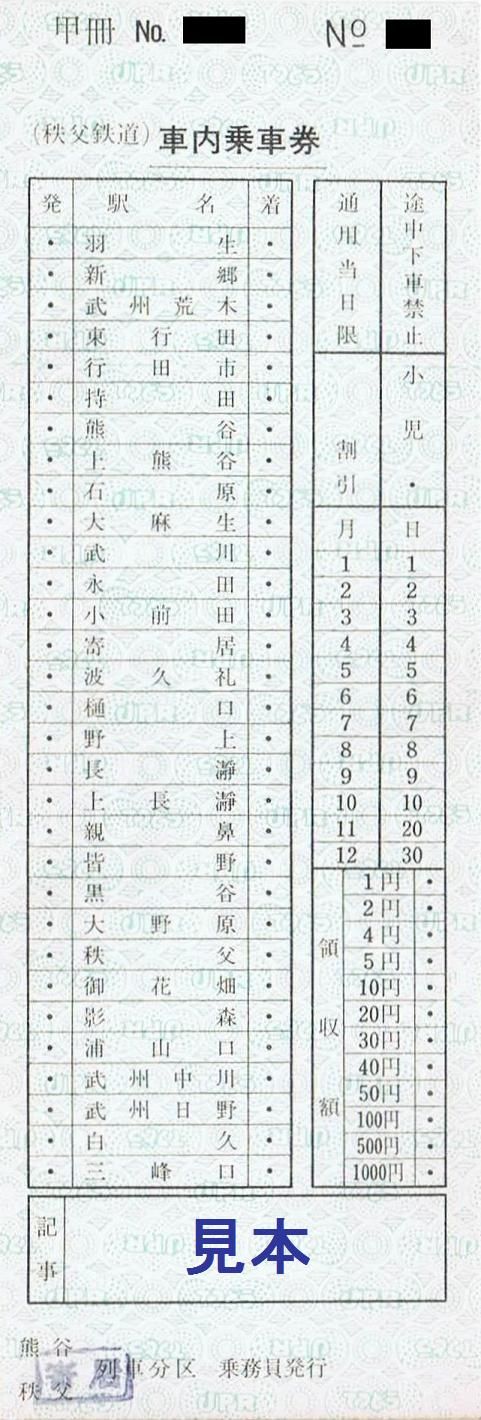 甲冊 No.
No
(秩父鉄道) 車内乗車券
発 駅名 着
・ 羽生 ・
・ 新郷 ・
・ 武州荒木 ・
・ 東行田 ・
・ 行田市 ・
・ 持田 ・
・ 熊谷 ・
・ 上熊谷 ・
・ 石原 ・
・ 大麻生 ・
・ 武川 ・
・ 永田 ・
・ 小前田 ・
・ 寄居 ・
・ 波久礼 ・
・ 樋口 ・
・ 野上 ・
・ 長瀞 ・
・ 上長瀞 ・
・ 親鼻 ・
・ 皆野 ・
・ 黒谷 ・
・ 大野原 ・
・ 秩父 ・
・ 御花畑 ・
・ 影森 ・
・ 浦山口 ・
・ 武州中川 ・
・ 武州日野 ・
・ 白久 ・
・ 三峰口 ・
通用当日限
途中下車禁止
割引
小児・
月 日
1 1
2 2
3 3
4 4
5 5
6 6
7 7
8 8
9 9
10 10
11 20
12 30
領収額
1円 ・
2円 ・
4円 ・
5円 ・
10円 ・
20円 ・
30円 ・
40円 ・
50円 ・
100円 ・
500円 ・
1000円 ・
記事
見本
熊谷
秩父
列車分区 乗務員発行